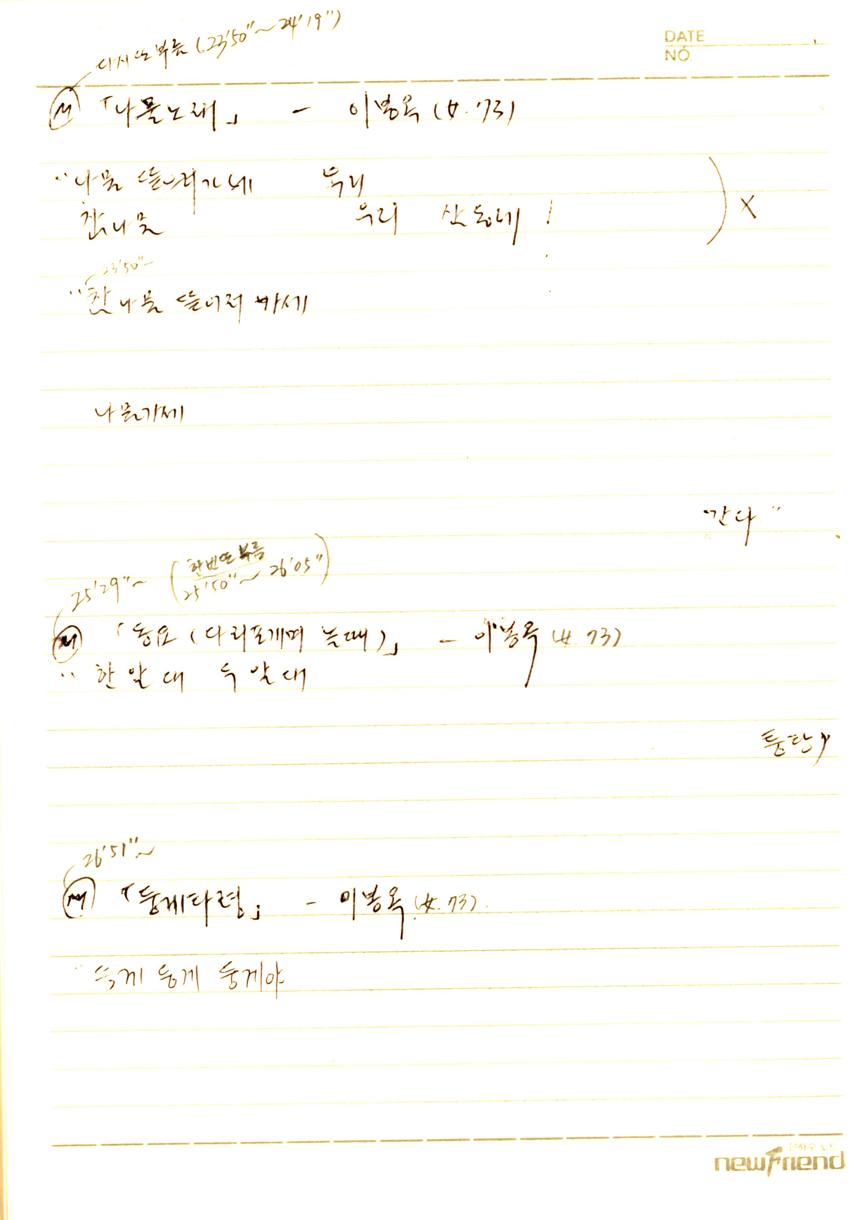 다시 또 부름 (23'50"~24'19")
DATE
NO
Ⓜ 「나물노래」 - 이봉옥 (女. 73)
"나물 뜯으러가세 우리
참나물 우리 산동네 !
) X
23'50"~
"참나물 뜯이러 가세
나물가세
간다"
25'29"~ (한번 또 부름 25'50"~26'05")
Ⓜ 「동요 (다리포개며 놀때)」 - 이봉옥 (女 73)
" 한알대 두알대
퉁탄"
26'51"~
Ⓜ 「둥게타령」 - 이봉옥 (女. 73).
" 둥게 둥게 둥게야
newFriend